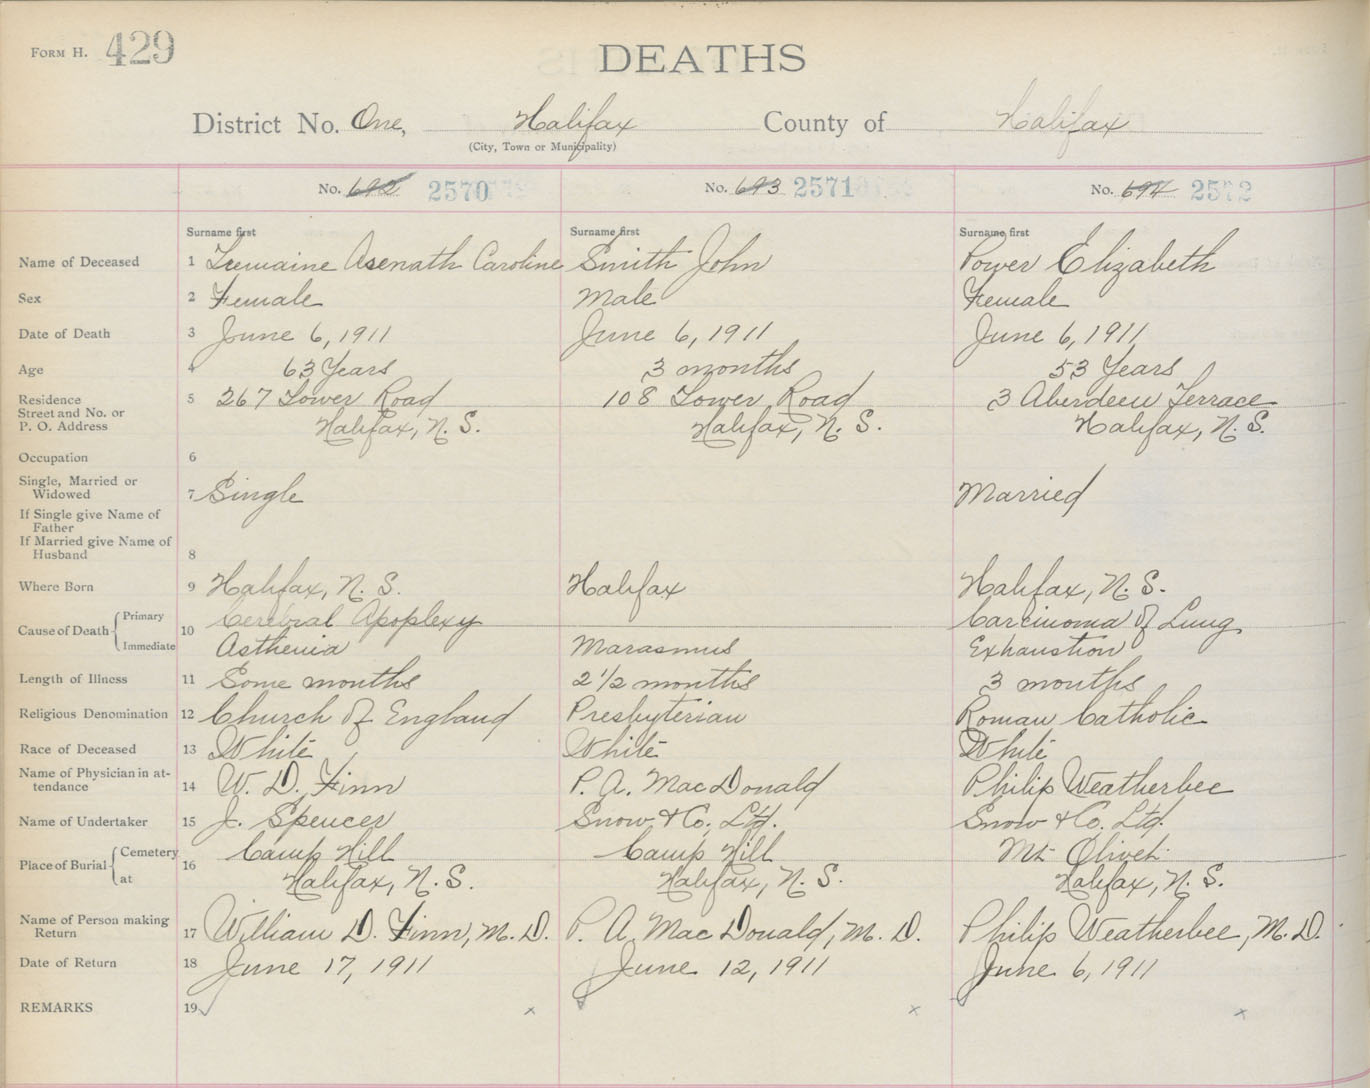 FORM H. 429
DEATHS
District No. One, Halifax County of Halifax
(City, Town or Municipality)
No. 692 2570 No. 693 2571 No. 694 2572
Surname first Surname first Surname first
Name of Deceased 1 Tremaine Asenath Caroline Smith John Power Elizabeth
Sex 2 Female Male Female
Date of Death 3 June 6, 1911 June 6, 1911 June 6, 1911
Age 4 63 Years 3 months 53 Years
Residence 5 267 Tower Road 108 Tower Road 3 Aberdeen Terrace
Street and No. or
P. O. Address Halifax, N. S. Halifax, N. S. Halifax, N. S.
Occupation 6
Single, Married or
Widowed 7 Single Married
If Single give Name of
Father
If Married give Name of
Husband 8
Where Born 9 Halifax, N. S. Halifax Halifax, N. S.
Primary Cerebral Apoplexy Carcinoma of Lung
Cause of Death 10
Immediate Asthenia Marasmus Exhaustion
Length of Illness 11 Some months 2 1/2 months 3 months
Religious Denomination 12 Church of England Presbyterian Roman Catholic
Race of Deceased 13 White White White
Name of Physician in at-
tendance 14 W. D. Finn P. A. MacDonald Philip Weatherbee
Name of Undertaker 15 J. Spencer Snow & Co. Ltd. Snow & Co. Ltd.
Cemetery Camp Hill Camp Hill Mt Olivet
Place of Burial 16
at Halifax, N. S. Halifax, N. S. Halifax, N. S.
Name of Person making
Return 17 William D. Finn, M. D. P. A. MacDonald, M. D. Philip Weatherbee, M. D.
Date of Return 18 June 17, 1911 June 12, 1911 June 6, 1911
REMARKS 19 x x x